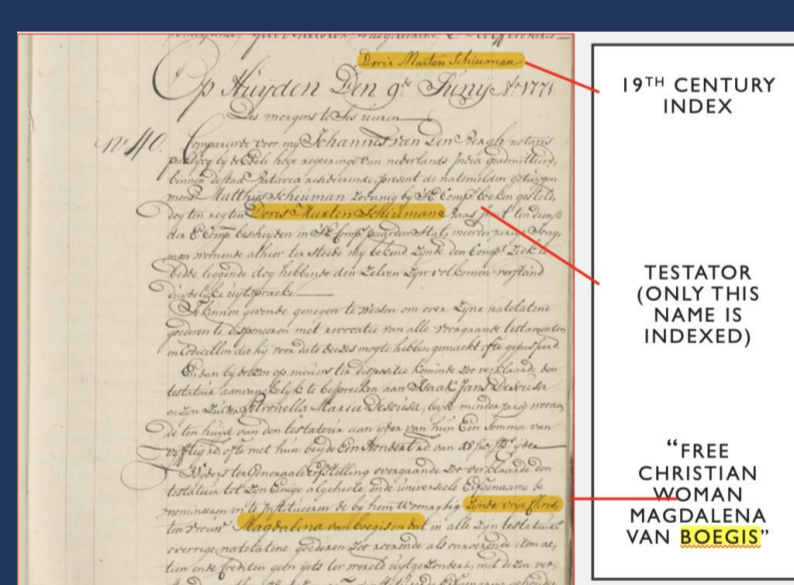 Doris Marten Schiuman
Op Huyden Den 9e Junij Ao 1771
Des morgens te Ses uuren
No 40. Compareerde voor my Johannes van Den Bergh notaris
publicq by de Edele hoge regeeringe van nederlands India geadmitteerd,
binnen de stad Batavia resideerende, present de natemelden getuigen
Matthijs Schiuman zodanig by Comps boeken gesteld,
dog ten regten Doris Marten Schiuman
man wonende alhier ter steede my bekend zynde den Compt Ziek te
bedde leggende dog hebbende den Zelven Zyn volkomen verstand
duydelyke uytspraeke
te kennen gevende genegen te weesen om over Zyne natelatene
goederen te disponeeren met revocatie van alle voorgaande testamenten
en Codicillen die hij voor dato deezes mogte hebben gemaakt ofte gepasseerd
En dan by deezen op nieuws ter dispositie komende zoo verklaarde den
testateur aanvankelyk te bespreeken aan Isaak Jans Desousa
en Zyn Zuster Petronella Maria Desousa, beyde minderjarig woonen
de ten huyse van den testateur aan yder van hun Een Somma van
vyftig rds ofte met hun beyde Een Honderd rds van
Wyders ter Generaale Erfstelling overgaande zoo verklaarde den
testateur tot Zyn Einige algeheele, ende universeele Erfgenaame te
nomineeren en te Institueeren de by hem woonagtig Zynde vrye Chris
ten vrouw Magdalena van boegis en dat in alle Zyn testateurs
overige natelatene goederen zoo roerende als onroerende
tien ende crediten gein ter wereld uytgezondert, met dezen ver
19TH CENTURY
INDEX
TESTATOR
(ONLY THIS
NAME IS
INDEXED)
“FREE
CHRISTIAN
WOMAN
MAGDALENA
VAN BOEGIS”